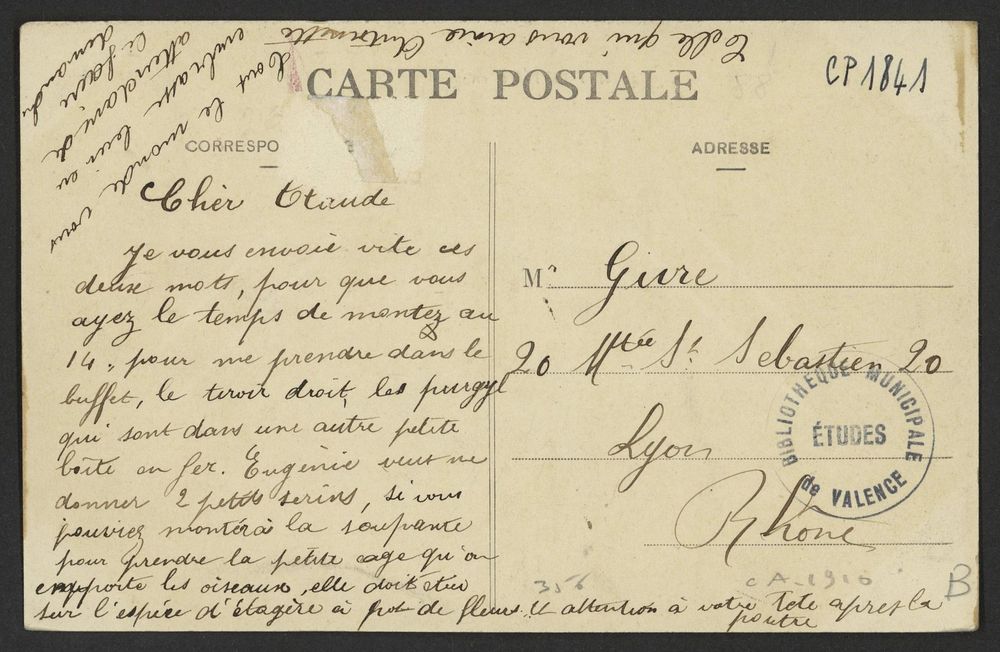 CARTE POSTALE
CP1841
CORRESPO
ADRESSE
Cher Claude
Je vous envoie vite ces
deux mots, pour que vous
ayez le temps de montez au
14, pour me prendre dans le
buffet, le tiroir droit, les purgyl
qui sont dans une autre petite
boîte en fer. Eugénie veut me
donner 2 petits serins, si vous
pouviez montér à la soupante
pour prendre la petite cage qu'on
emporte les oiseaux, elle doit être
sur l'espèce d'étagère à pot de fleurs. et attention à votre tete apres la
poutre
tout le monde vous
embrasse bien en
attendant de
faire
demande
Celle qui vous aime Antoinette
Mr Givre
20 Mtée St Sebastien 20
Lyon
Rhone
BIBLIOTHEQUE MUNICIPALE
ÉTUDES
de VALENCE
356
CA-1910
B